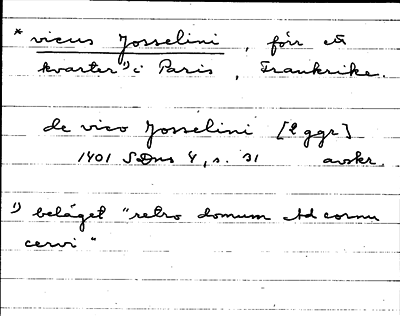 * vicus Josselini, förr ett
kvarter ¹) i Paris, Frankrike.
de vico Josselini [2 ggr]
1401 SDns 4, s. 31 avskr.
¹) beläget "retro domum Ad cornu
cervi"